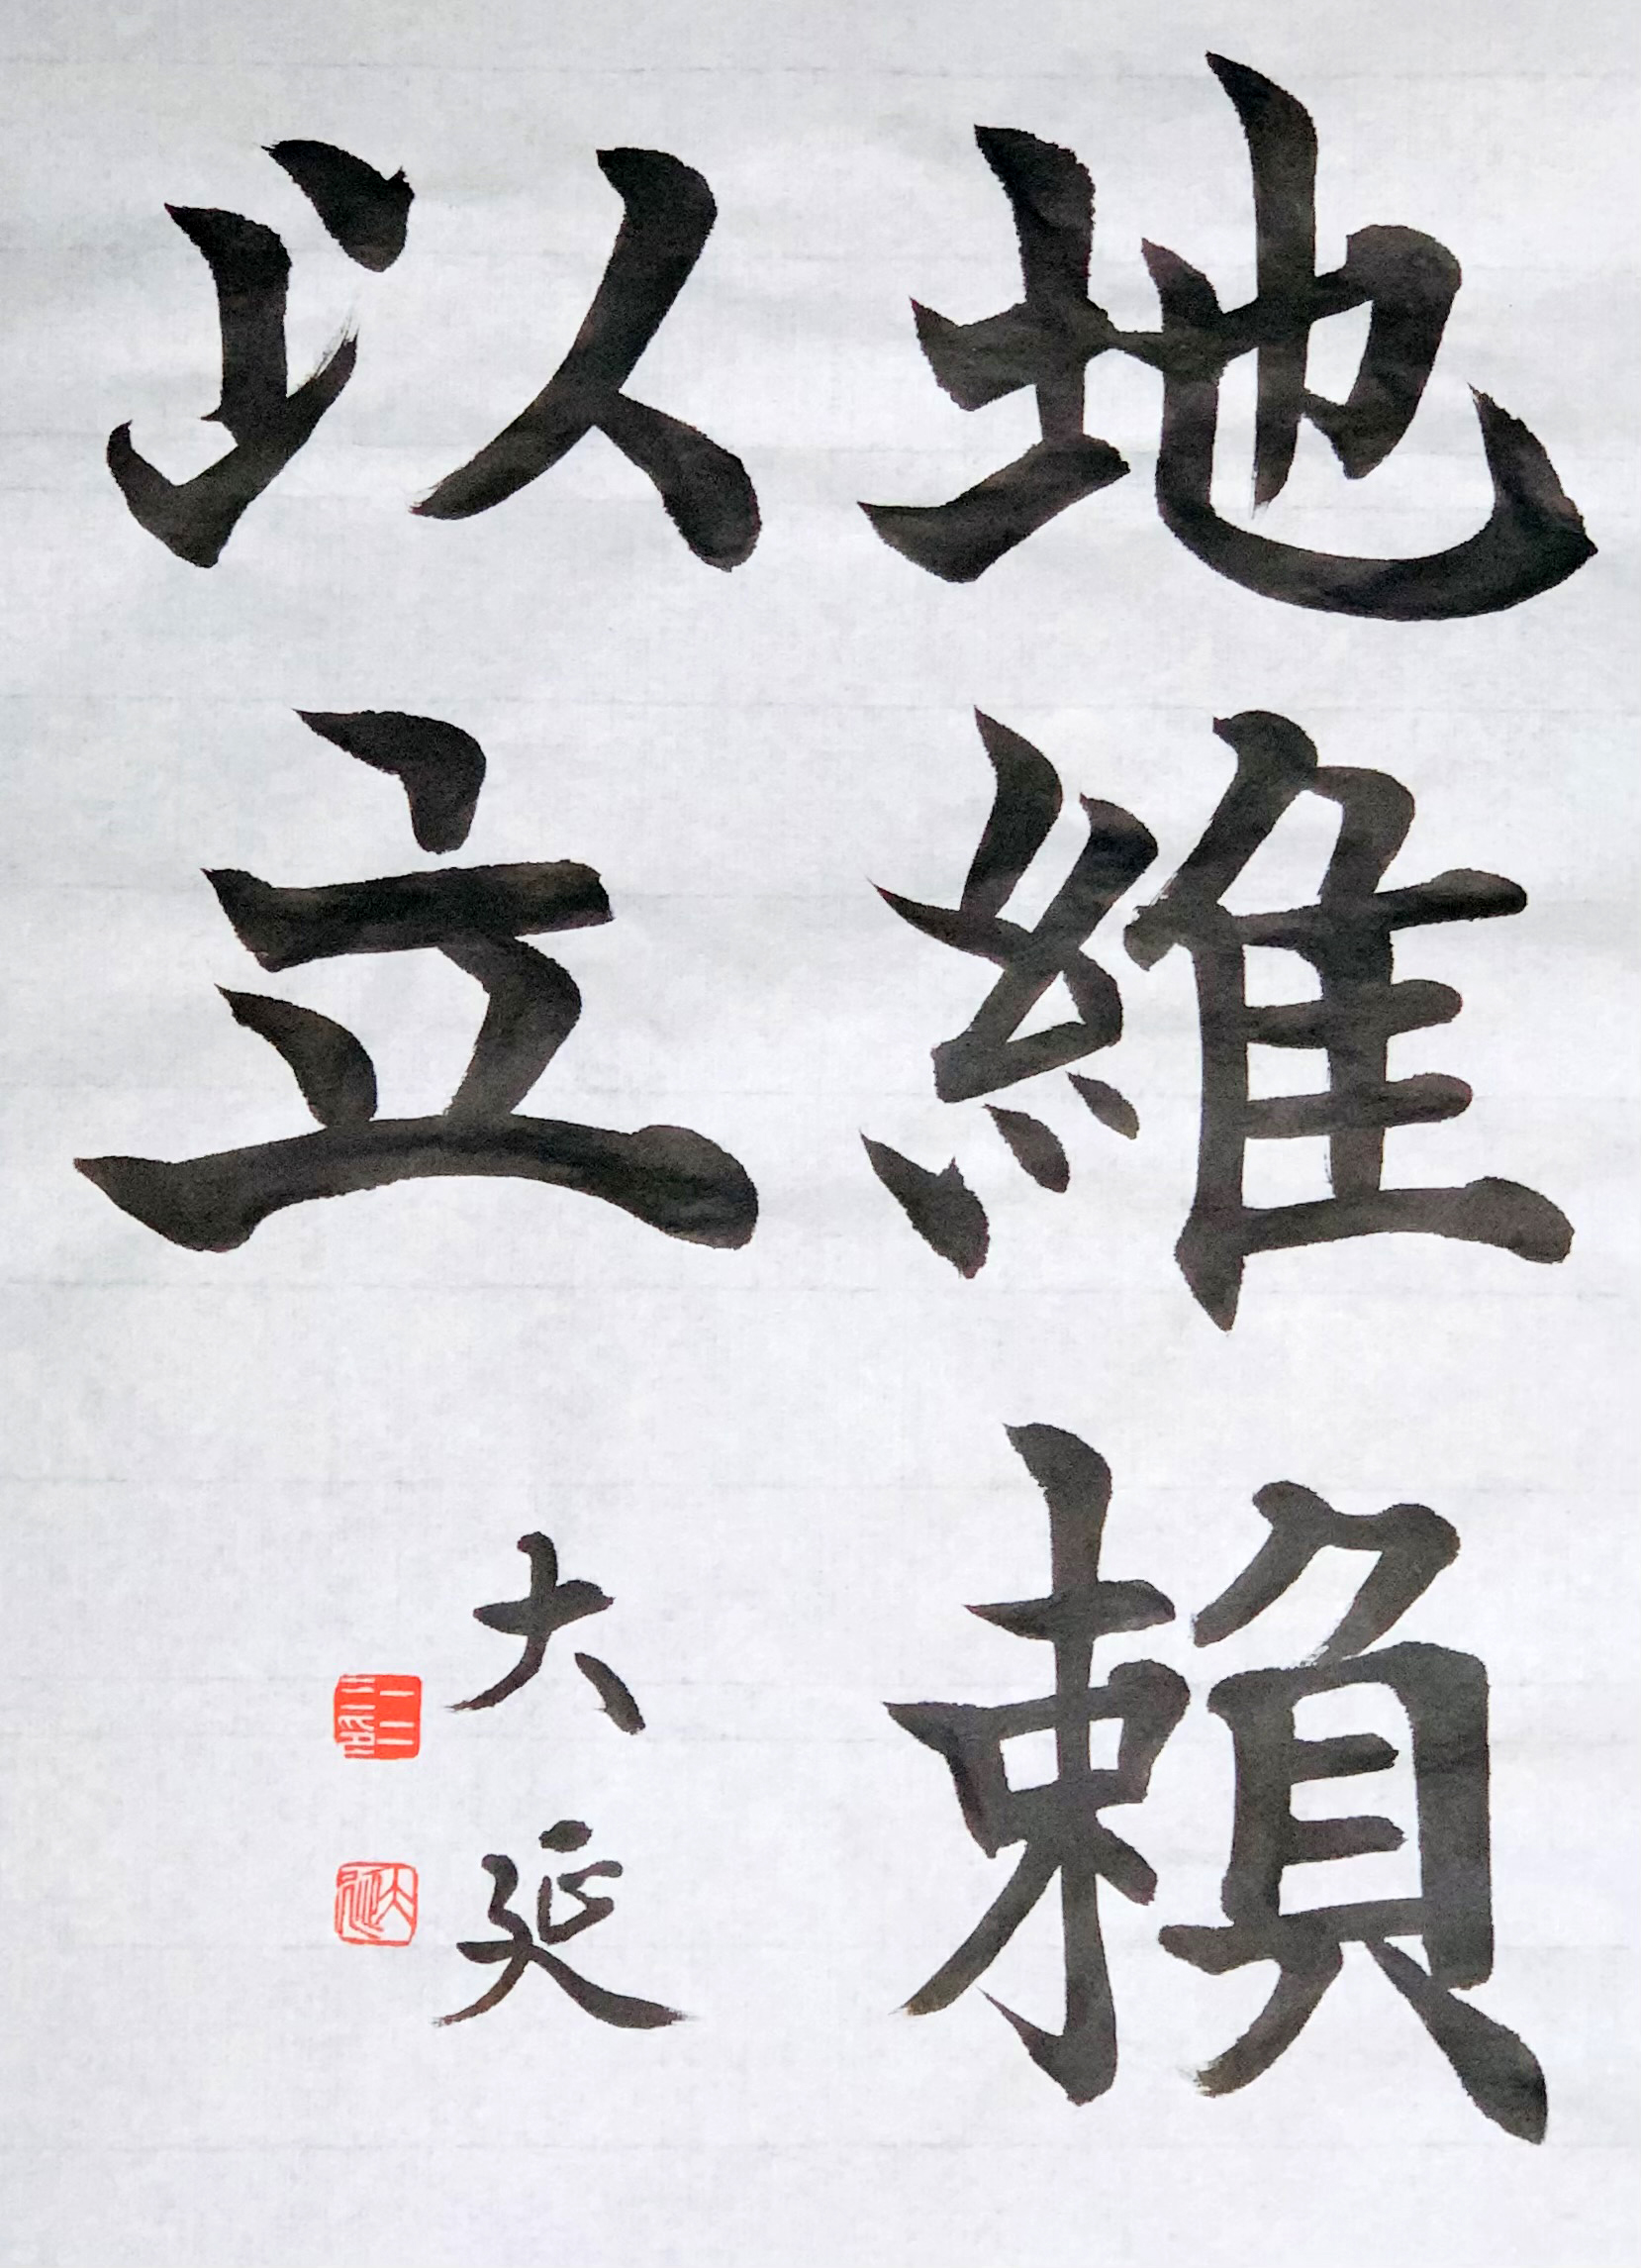 地維賴
以立
大延